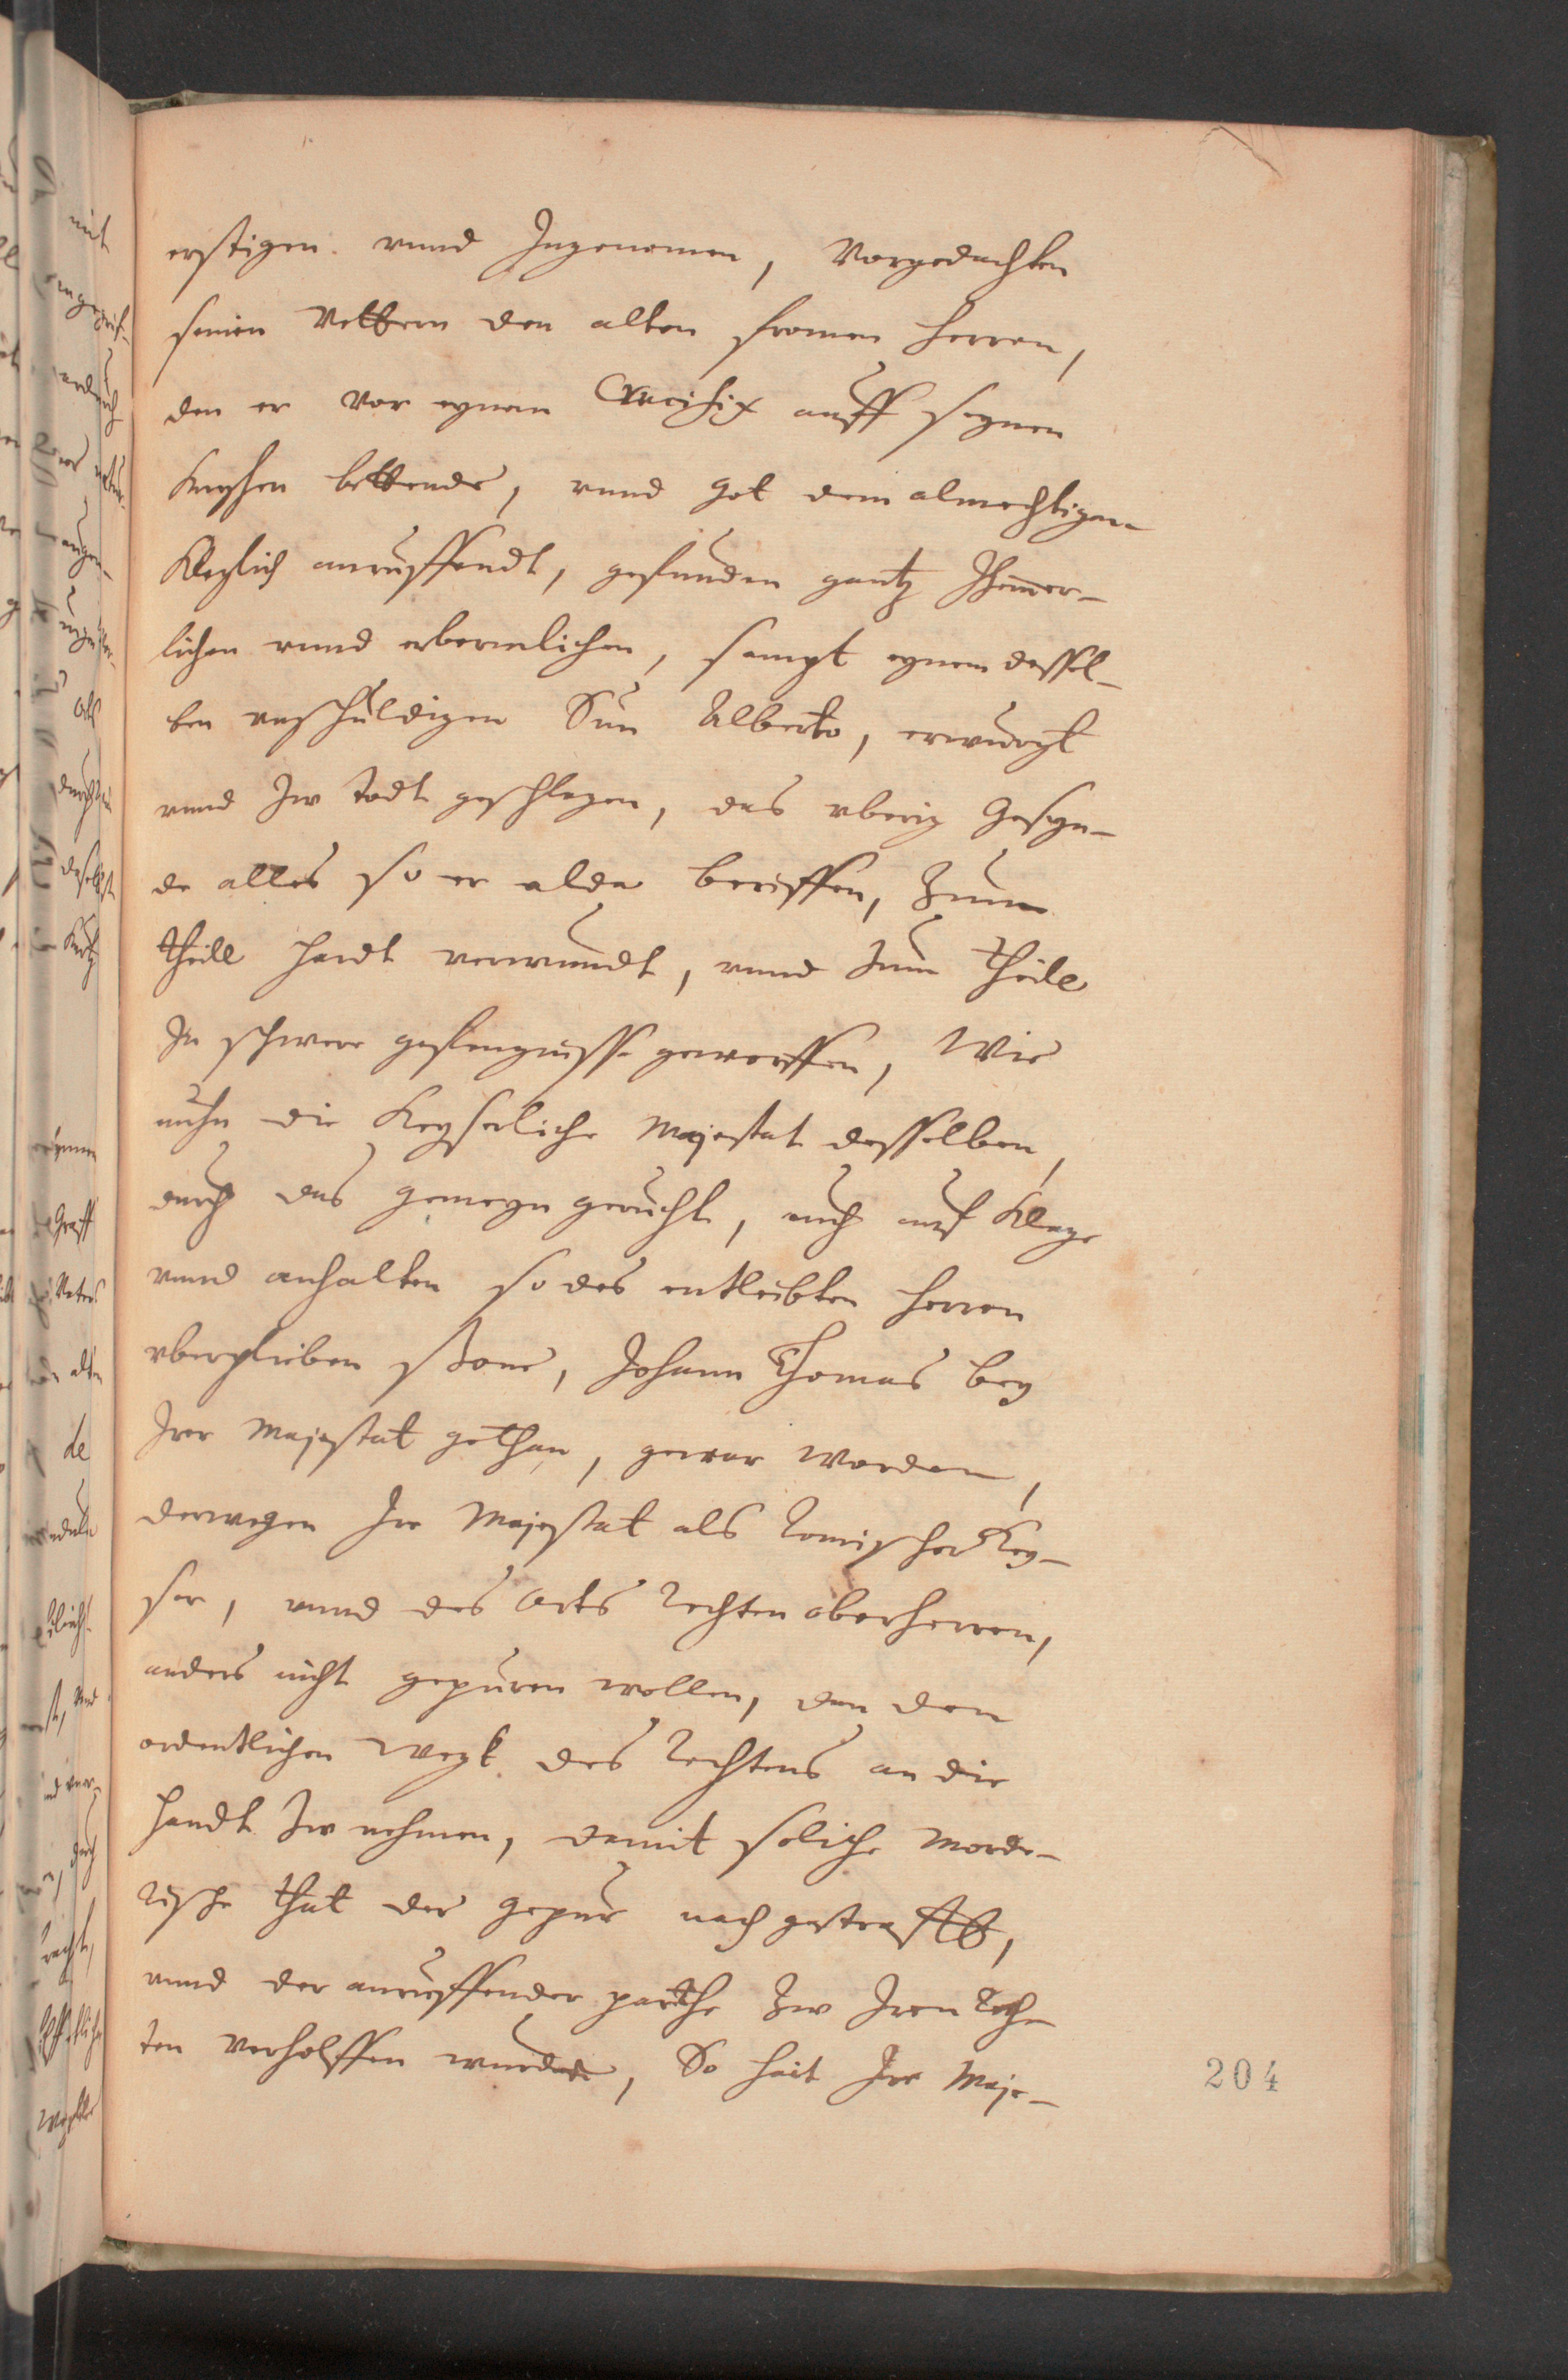 erstigen vnnd Ingenomen, Vorgedachten
seinen Vettern den alten fromen herren,
den er vor eynem Crucifix auff seynen
Knyhen bettende, vnnd got dem almechtigen
kleglich anruffendt, gefunden gantz Jhemer-
lichen vnnd erbermlichen, sampt eynem dessel-
ben vnschuldigen Sun Alberto, erwurgt
vnnd Zw todt geschlagen, das vberig Gesyn-
de alles so er alda betriffen, Zum
theill hardt verwundt, vnnd Zum theile
In schwere gefengnusse geworffen, Wie
nuhn die Keyserliche Majestat desselben,
durch das gemeyn gerucht, auch auf Klage
vnnd anhalten so des entleibten herren
vberplieben Shone, Johann Thomas bey
Irer Majestat gethan, gewar worden,
derwegen Ire Majestat als Romischer Key-
ser, vnnd des Orts Rechten oberherren,
anders nicht gepuren wollen, dan den
ordentlichen wegk des Rechtens an die
handt Zw nehmen, damit soliche morde-
rische that der gepur nach gestrafft,
vnnd der anruffender parthe Zw Iren Rech-
ten verholffen wurde, So hait Ire Maje-
204